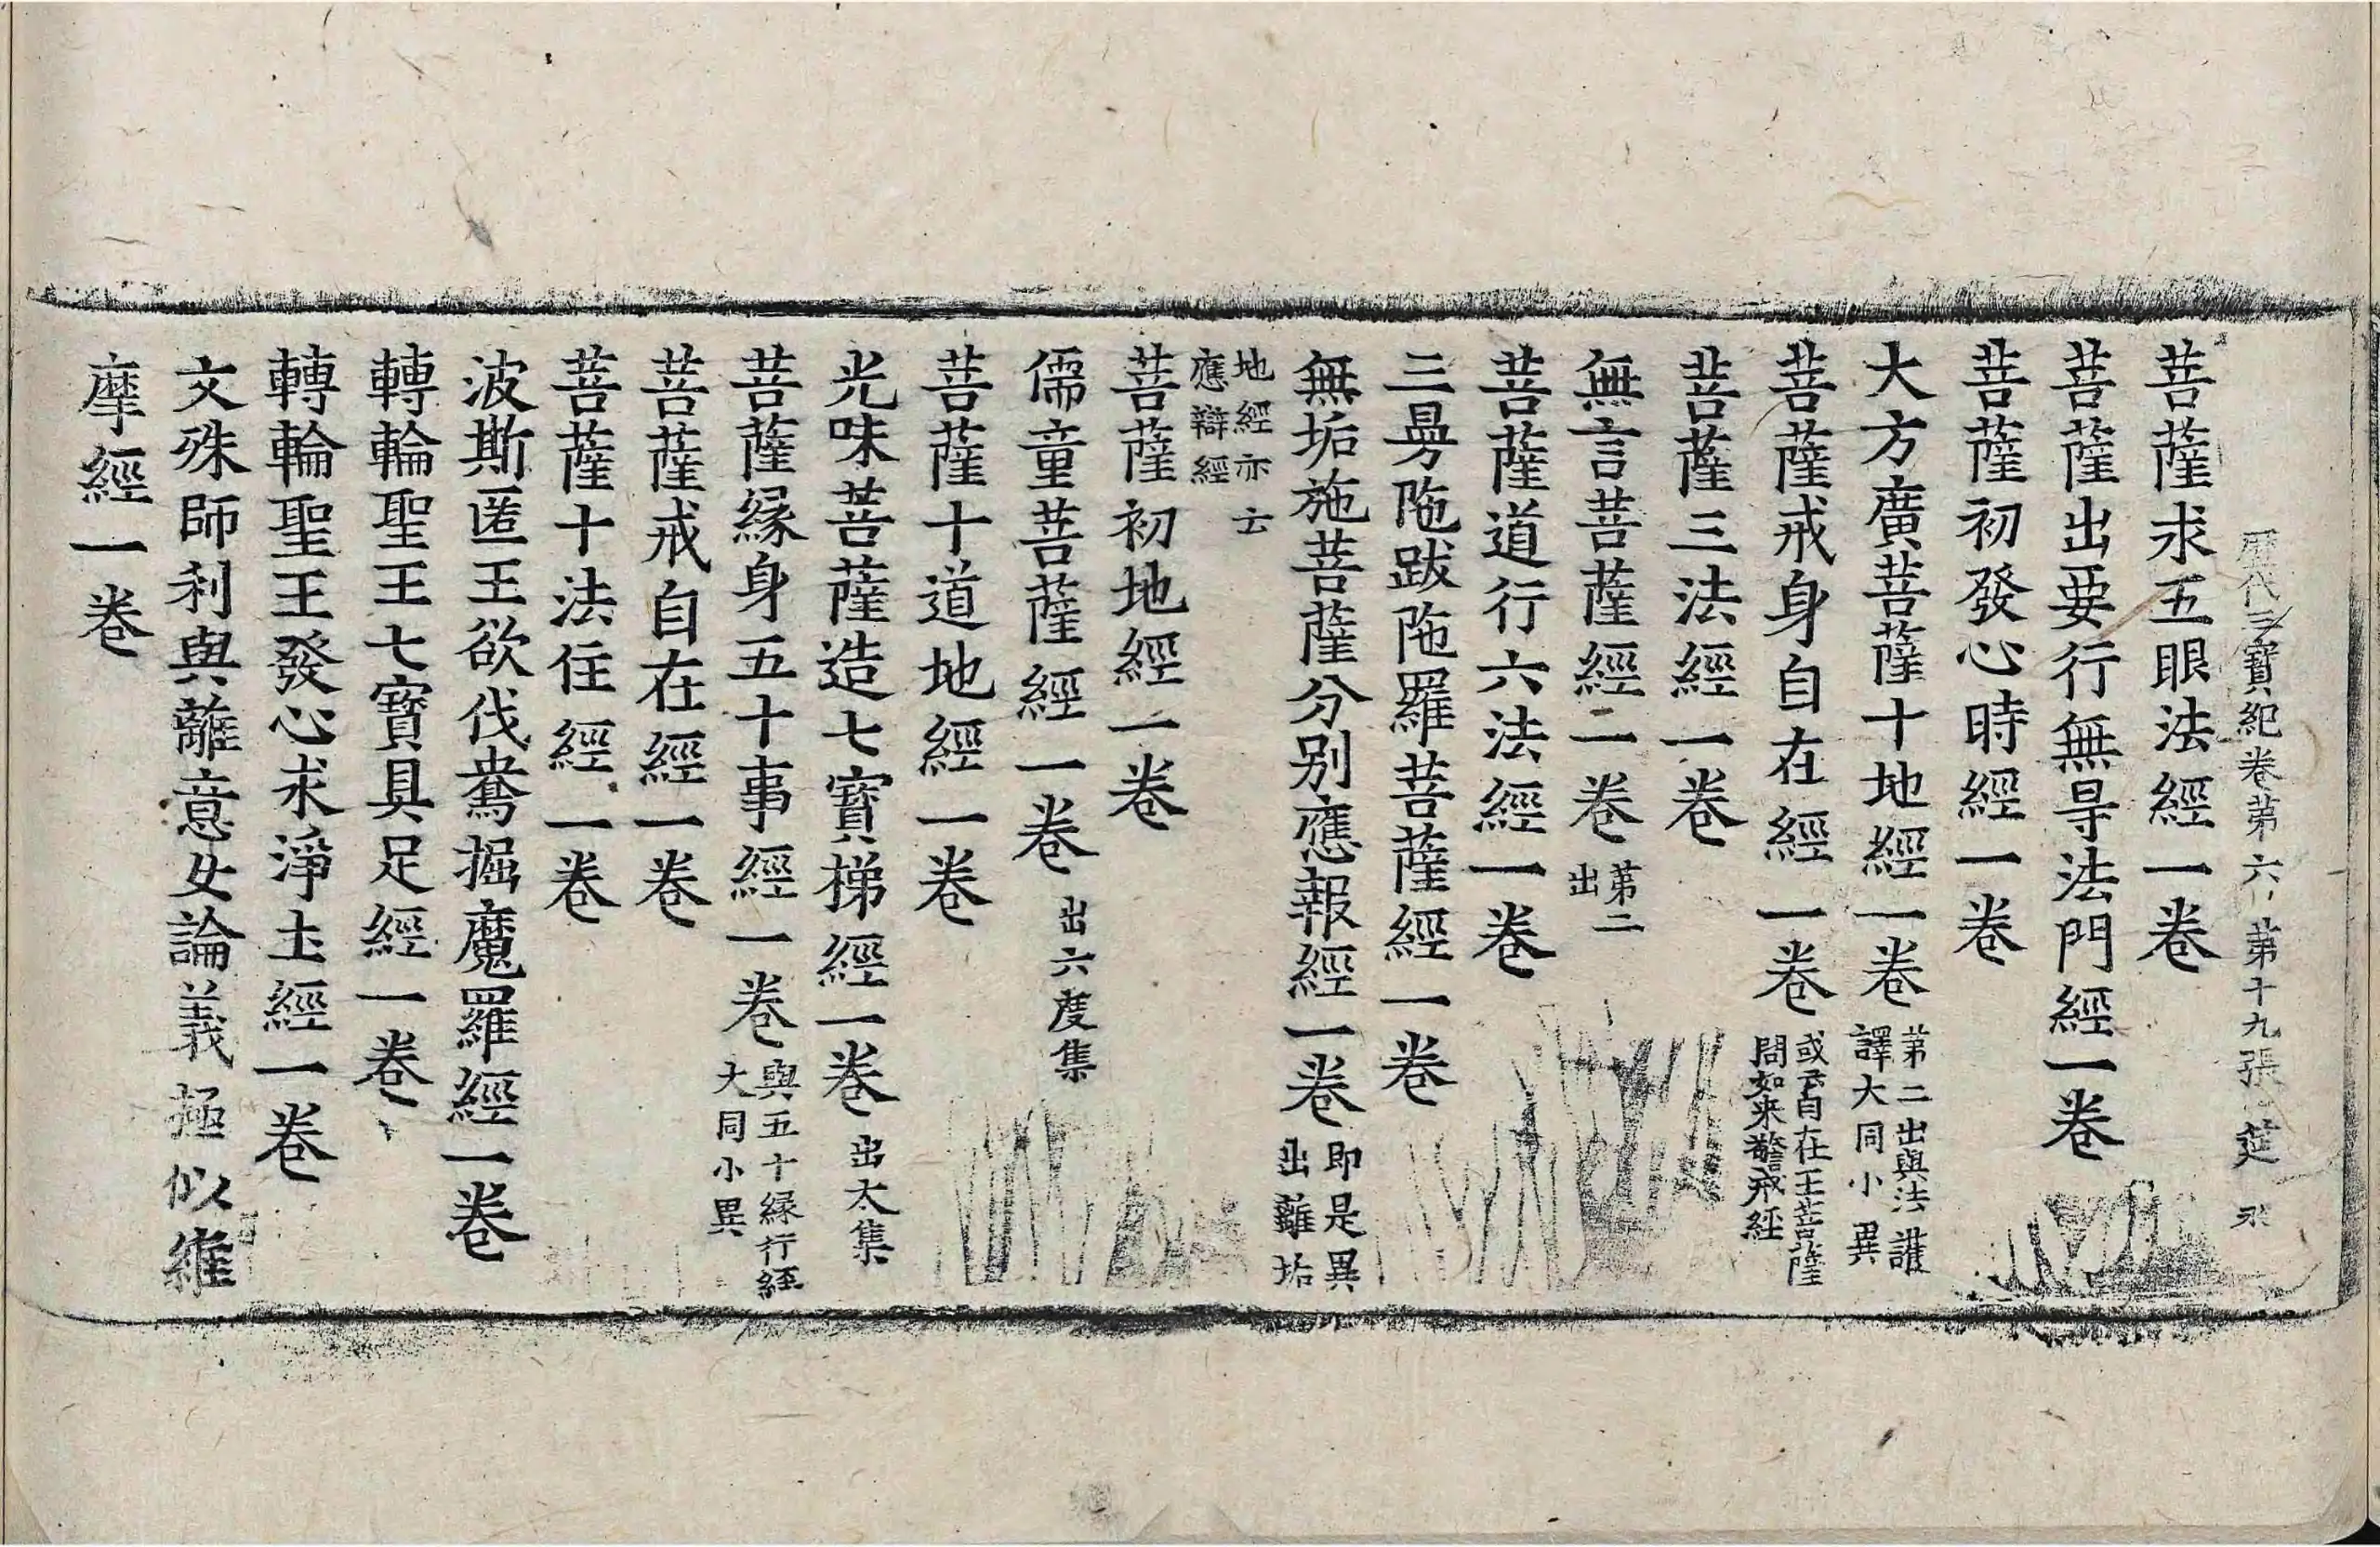 歷代三寶紀卷第六 第十九張 莚
菩薩求五眼法經一卷
菩薩出要行無㝵法門經一卷
菩薩初發心時經一卷
大方廣菩薩十地經一卷
第二出與法護
譯大同小異
菩薩戒身自在經一卷
或云自在王菩薩
問如来警戒經
菩薩三法經一卷
無言菩薩經二卷
第二
出
菩薩道行六法經一卷
三曼陁跋陁羅菩薩經一卷
無垢施菩薩分别應報經一卷
即是異
出離垢
地經亦云
應辯經
菩薩初地經一卷
儒童菩薩經一卷 出六度集
菩薩十道地經一卷
光味菩薩造七寶梯經一卷 出大集
菩薩緣身五十事經一卷
與五十緣行經
大同小異
菩薩戒自在經一卷
菩薩十法住經一卷
波斯匿王欲伐鴦掘魔羅經一卷
轉輪聖王七寶具足經一卷
轉輪聖王發心求淨土經一卷
文殊師利與離意女論義極似維
摩經一卷